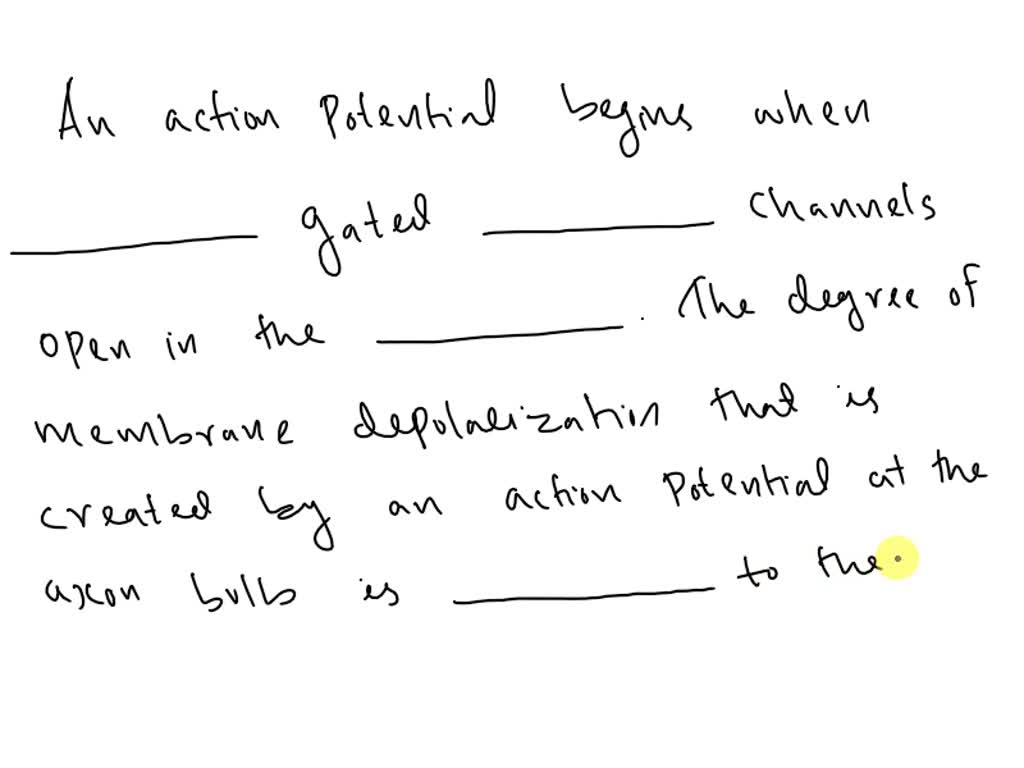 An action Potential begins when
__________ gated __________ channels
open in the __________. The degree of
membrane depolarization that is
created by an action potential at the
axon bulb is __________ to the